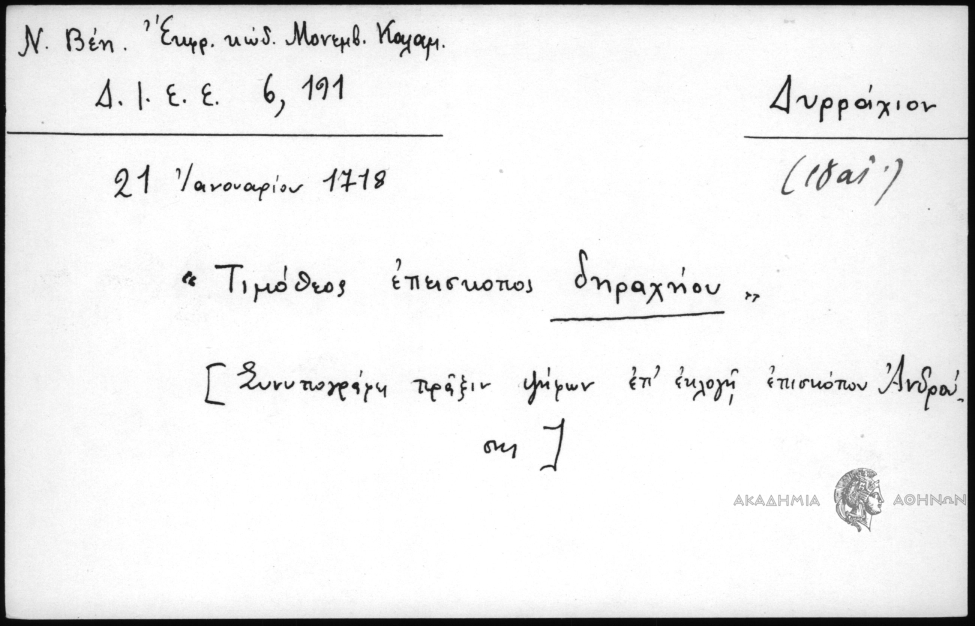 Ν. Βέη. Ἔκφρ. κώδ. Μονεμβ. Καλαμ.
Δ. Ι. Ε. Ε. 6, 191
Δυρράχιον
21 Ἰανουαρίου 1718
« Τιμόθεος ἐπεισκοπος δηραχήου »
[ Συνυπογράφη πρᾶξιν ψήφων ἐπ' ἐκλογῇ ἐπισκόπου Ἀνδρού-
σης ]
ΑΚΑΔΗΜΙΑ ΑΘΗΝΩΝ